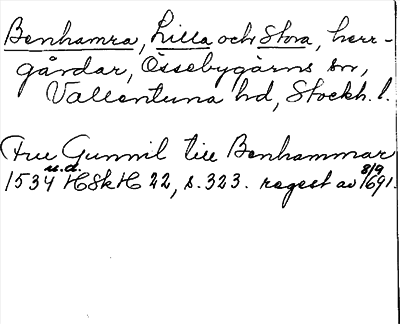 Benhamra, Lilla och Stora, herr-
gårdar, Össebygarns sn,
Vallentuna hd, Stockh. l.
Fru Gunnil till Benhammar
1534 u.d. HSkH 22, s. 323. regest av 8/9 1691.